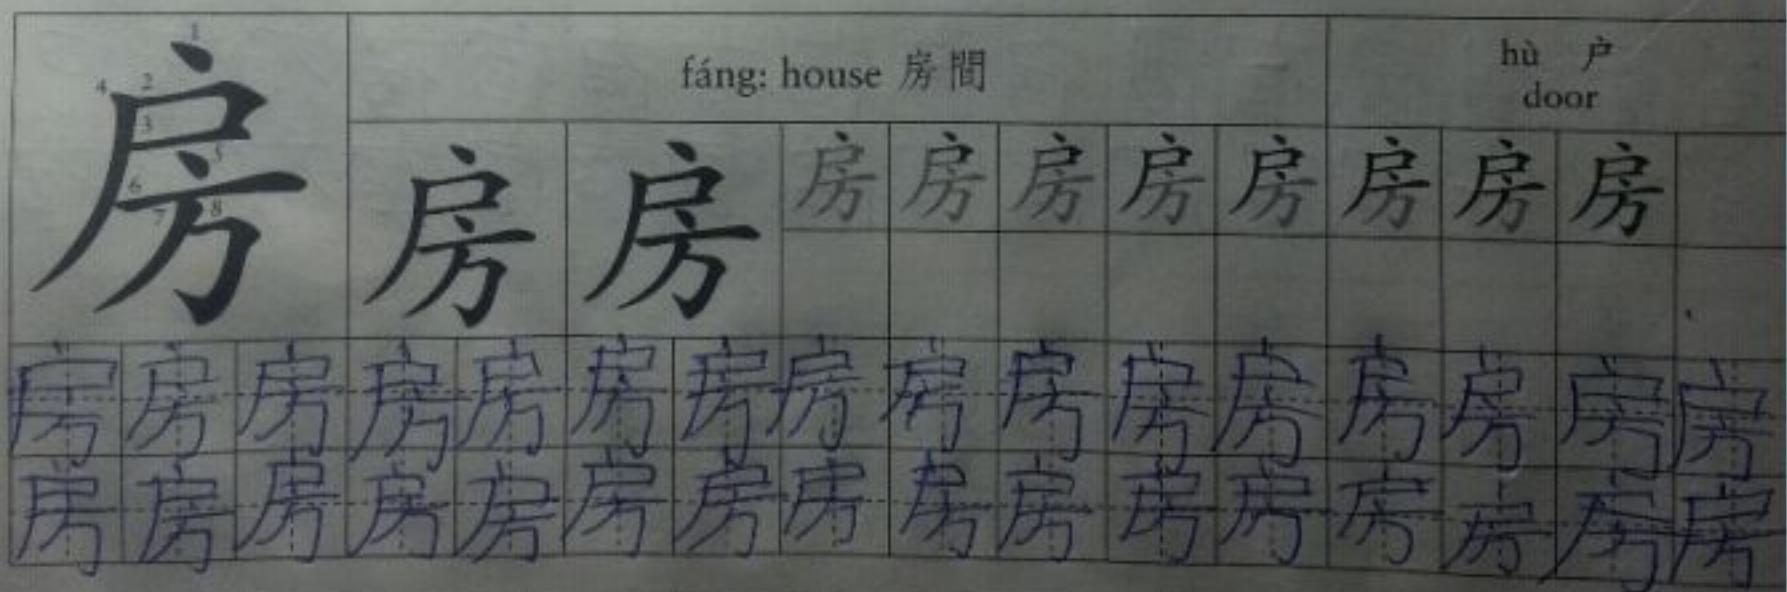 房
1
2
3
4
5
6
7
8
fáng: house 房間
hù 户
door
房 房 房 房 房 房 房 房 房 房
房 房 房 房 房 房 房 房 房 房 房 房 房 房 房 房
房 房 房 房 房 房 房 房 房 房 房 房 房 房 房 房